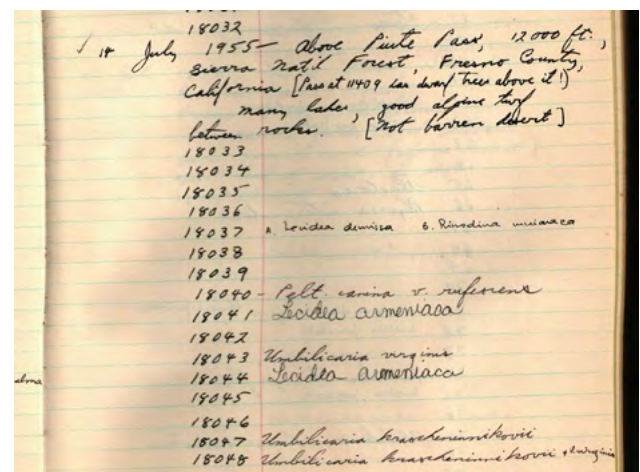 18032
✓ 18 July 1955 - Above Piute Pass, 12000 ft.,
Sierra Nat'l Forest, Fresno County,
California [Pass at 11409 has dwarf trees above it!)
many lakes, good alpine turf
between rocks. [Not barren desert]
18033
18034
18035
18036
18037 A. Lecidea demissa B. Rinodina
18038
18039
18040 - Pelt. canina v. rufescens
18041 Lecidea armeniaca
18042
18043 Umbilicaria virginis
18044 Lecidea armeniaca
18045
18046
18047 Umbilicaria krascheninnikovii
18048 Umbilicaria krascheninnikovii + U. virginis